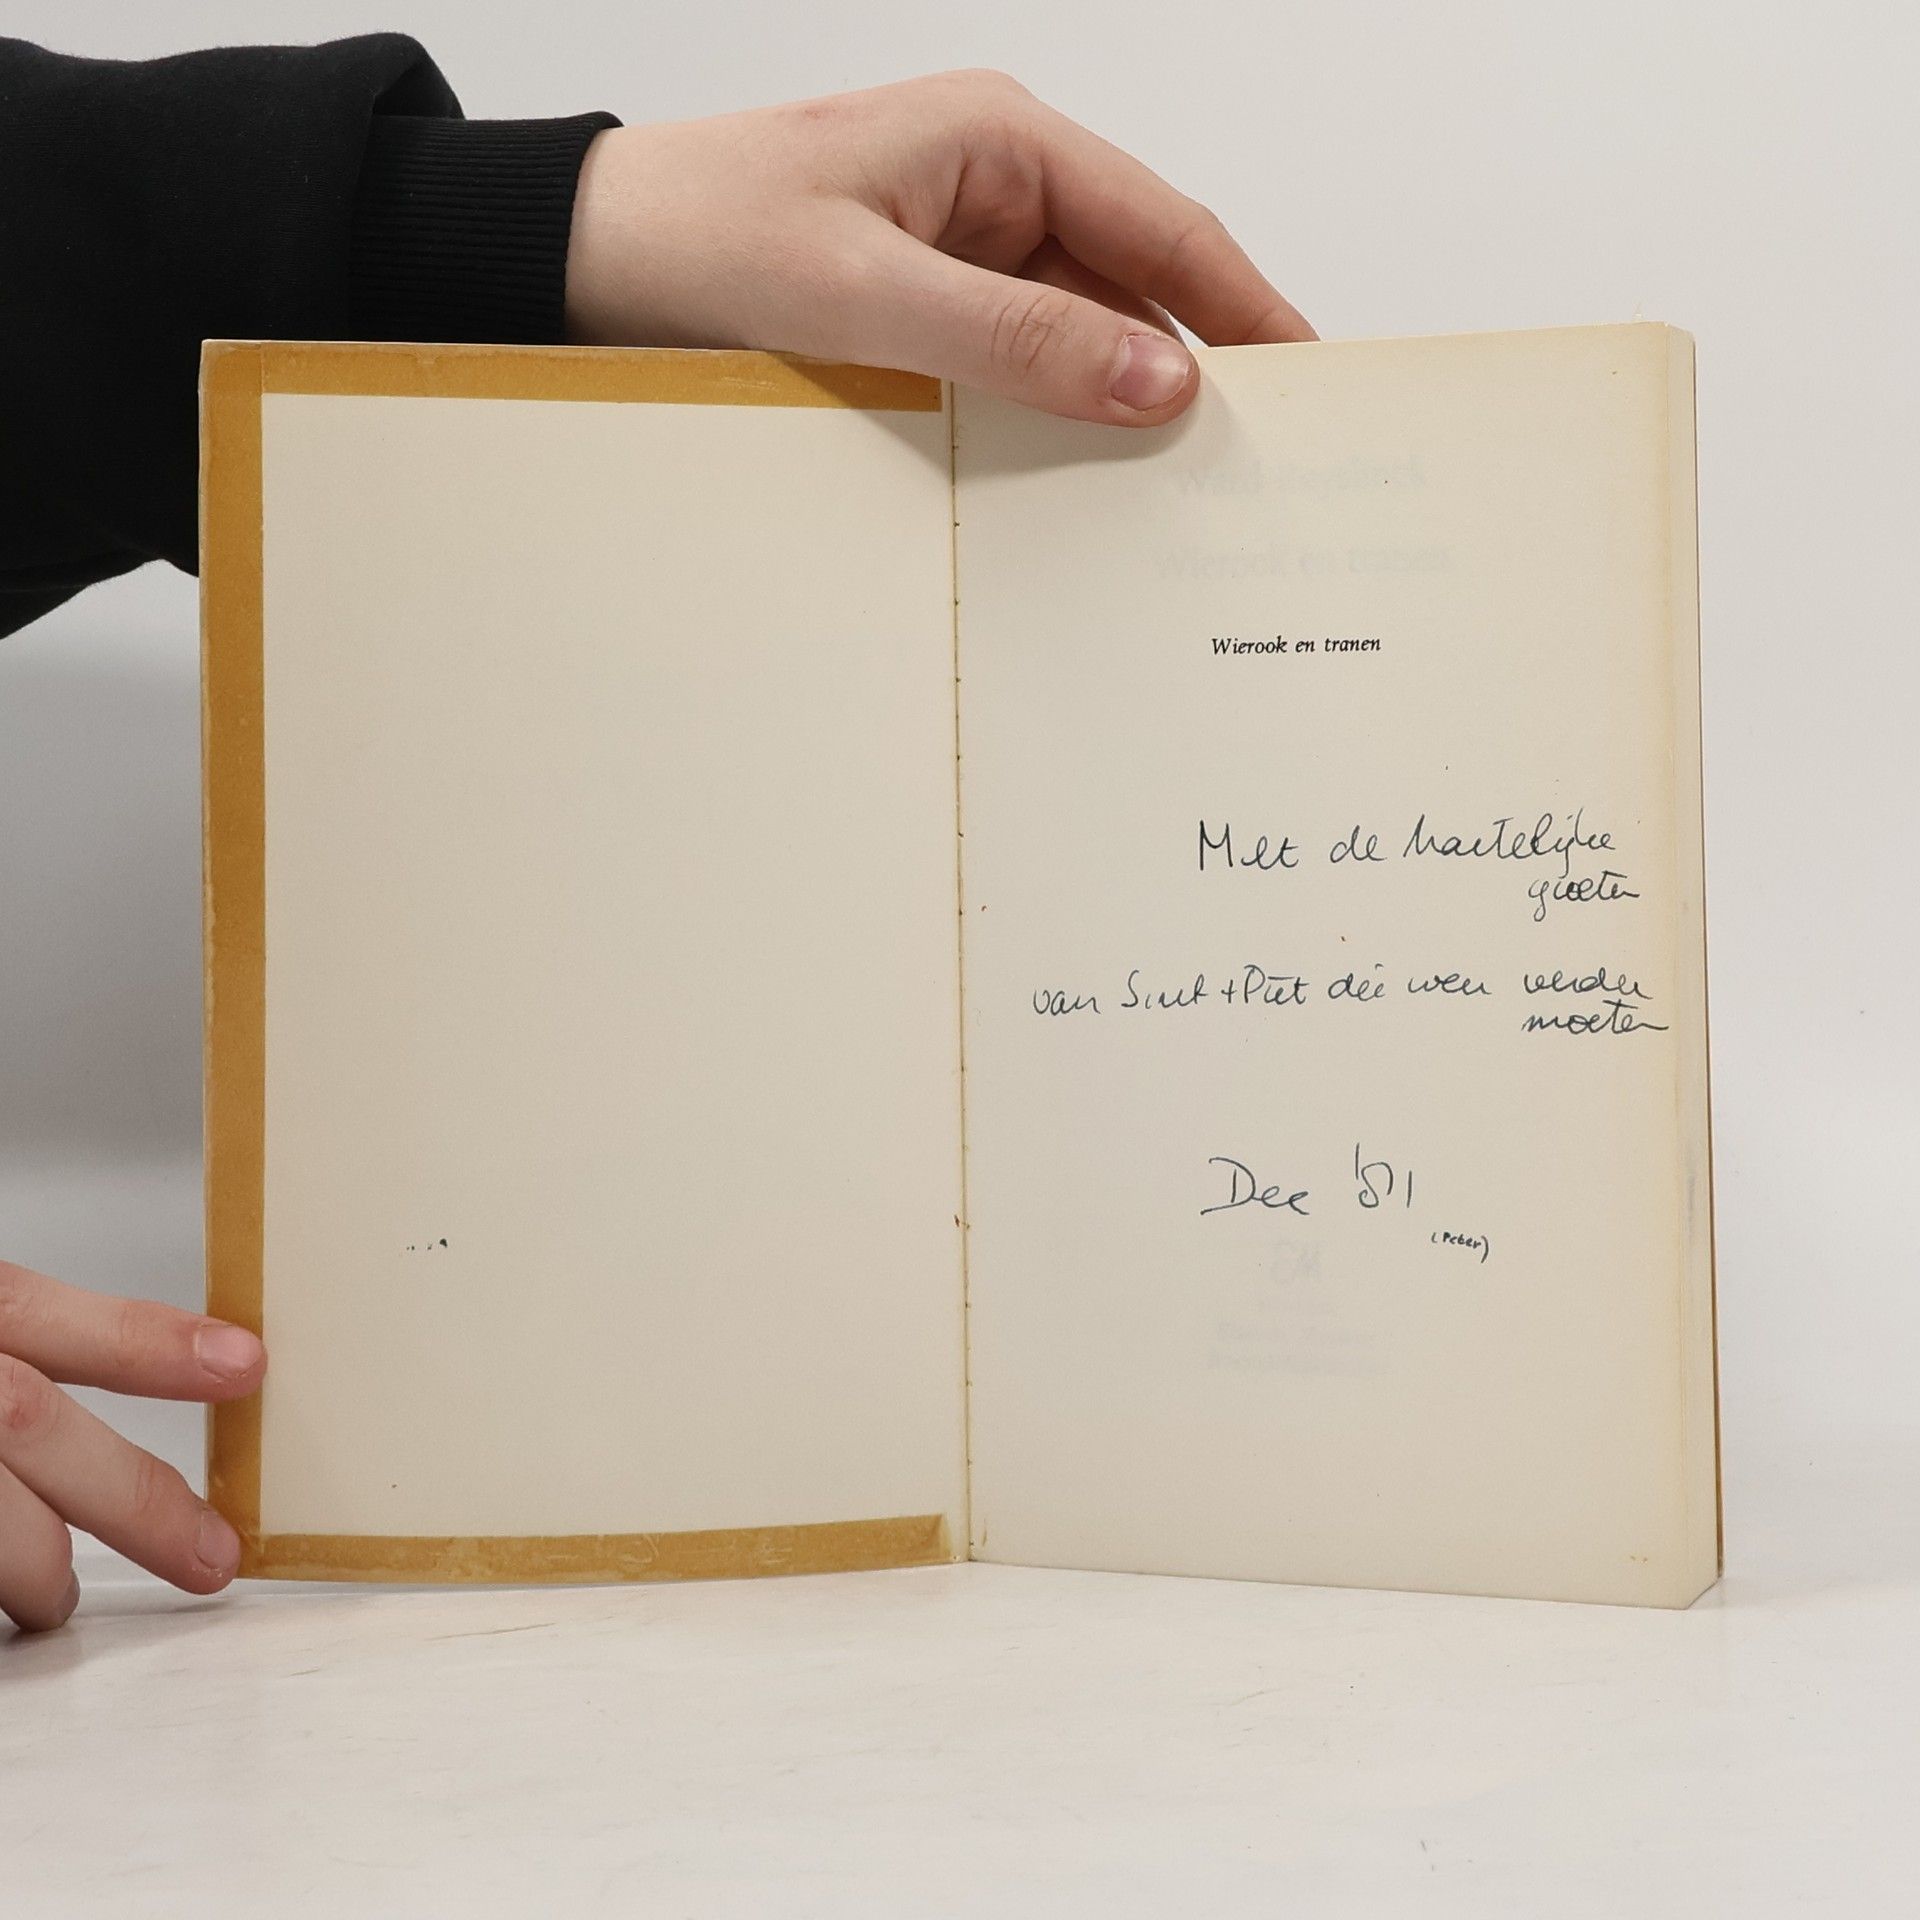 Wierook en tranen
Met de hartelijke
groeten
van Sint + Piet die weer verder
moeten
Dec '81
(Peter)